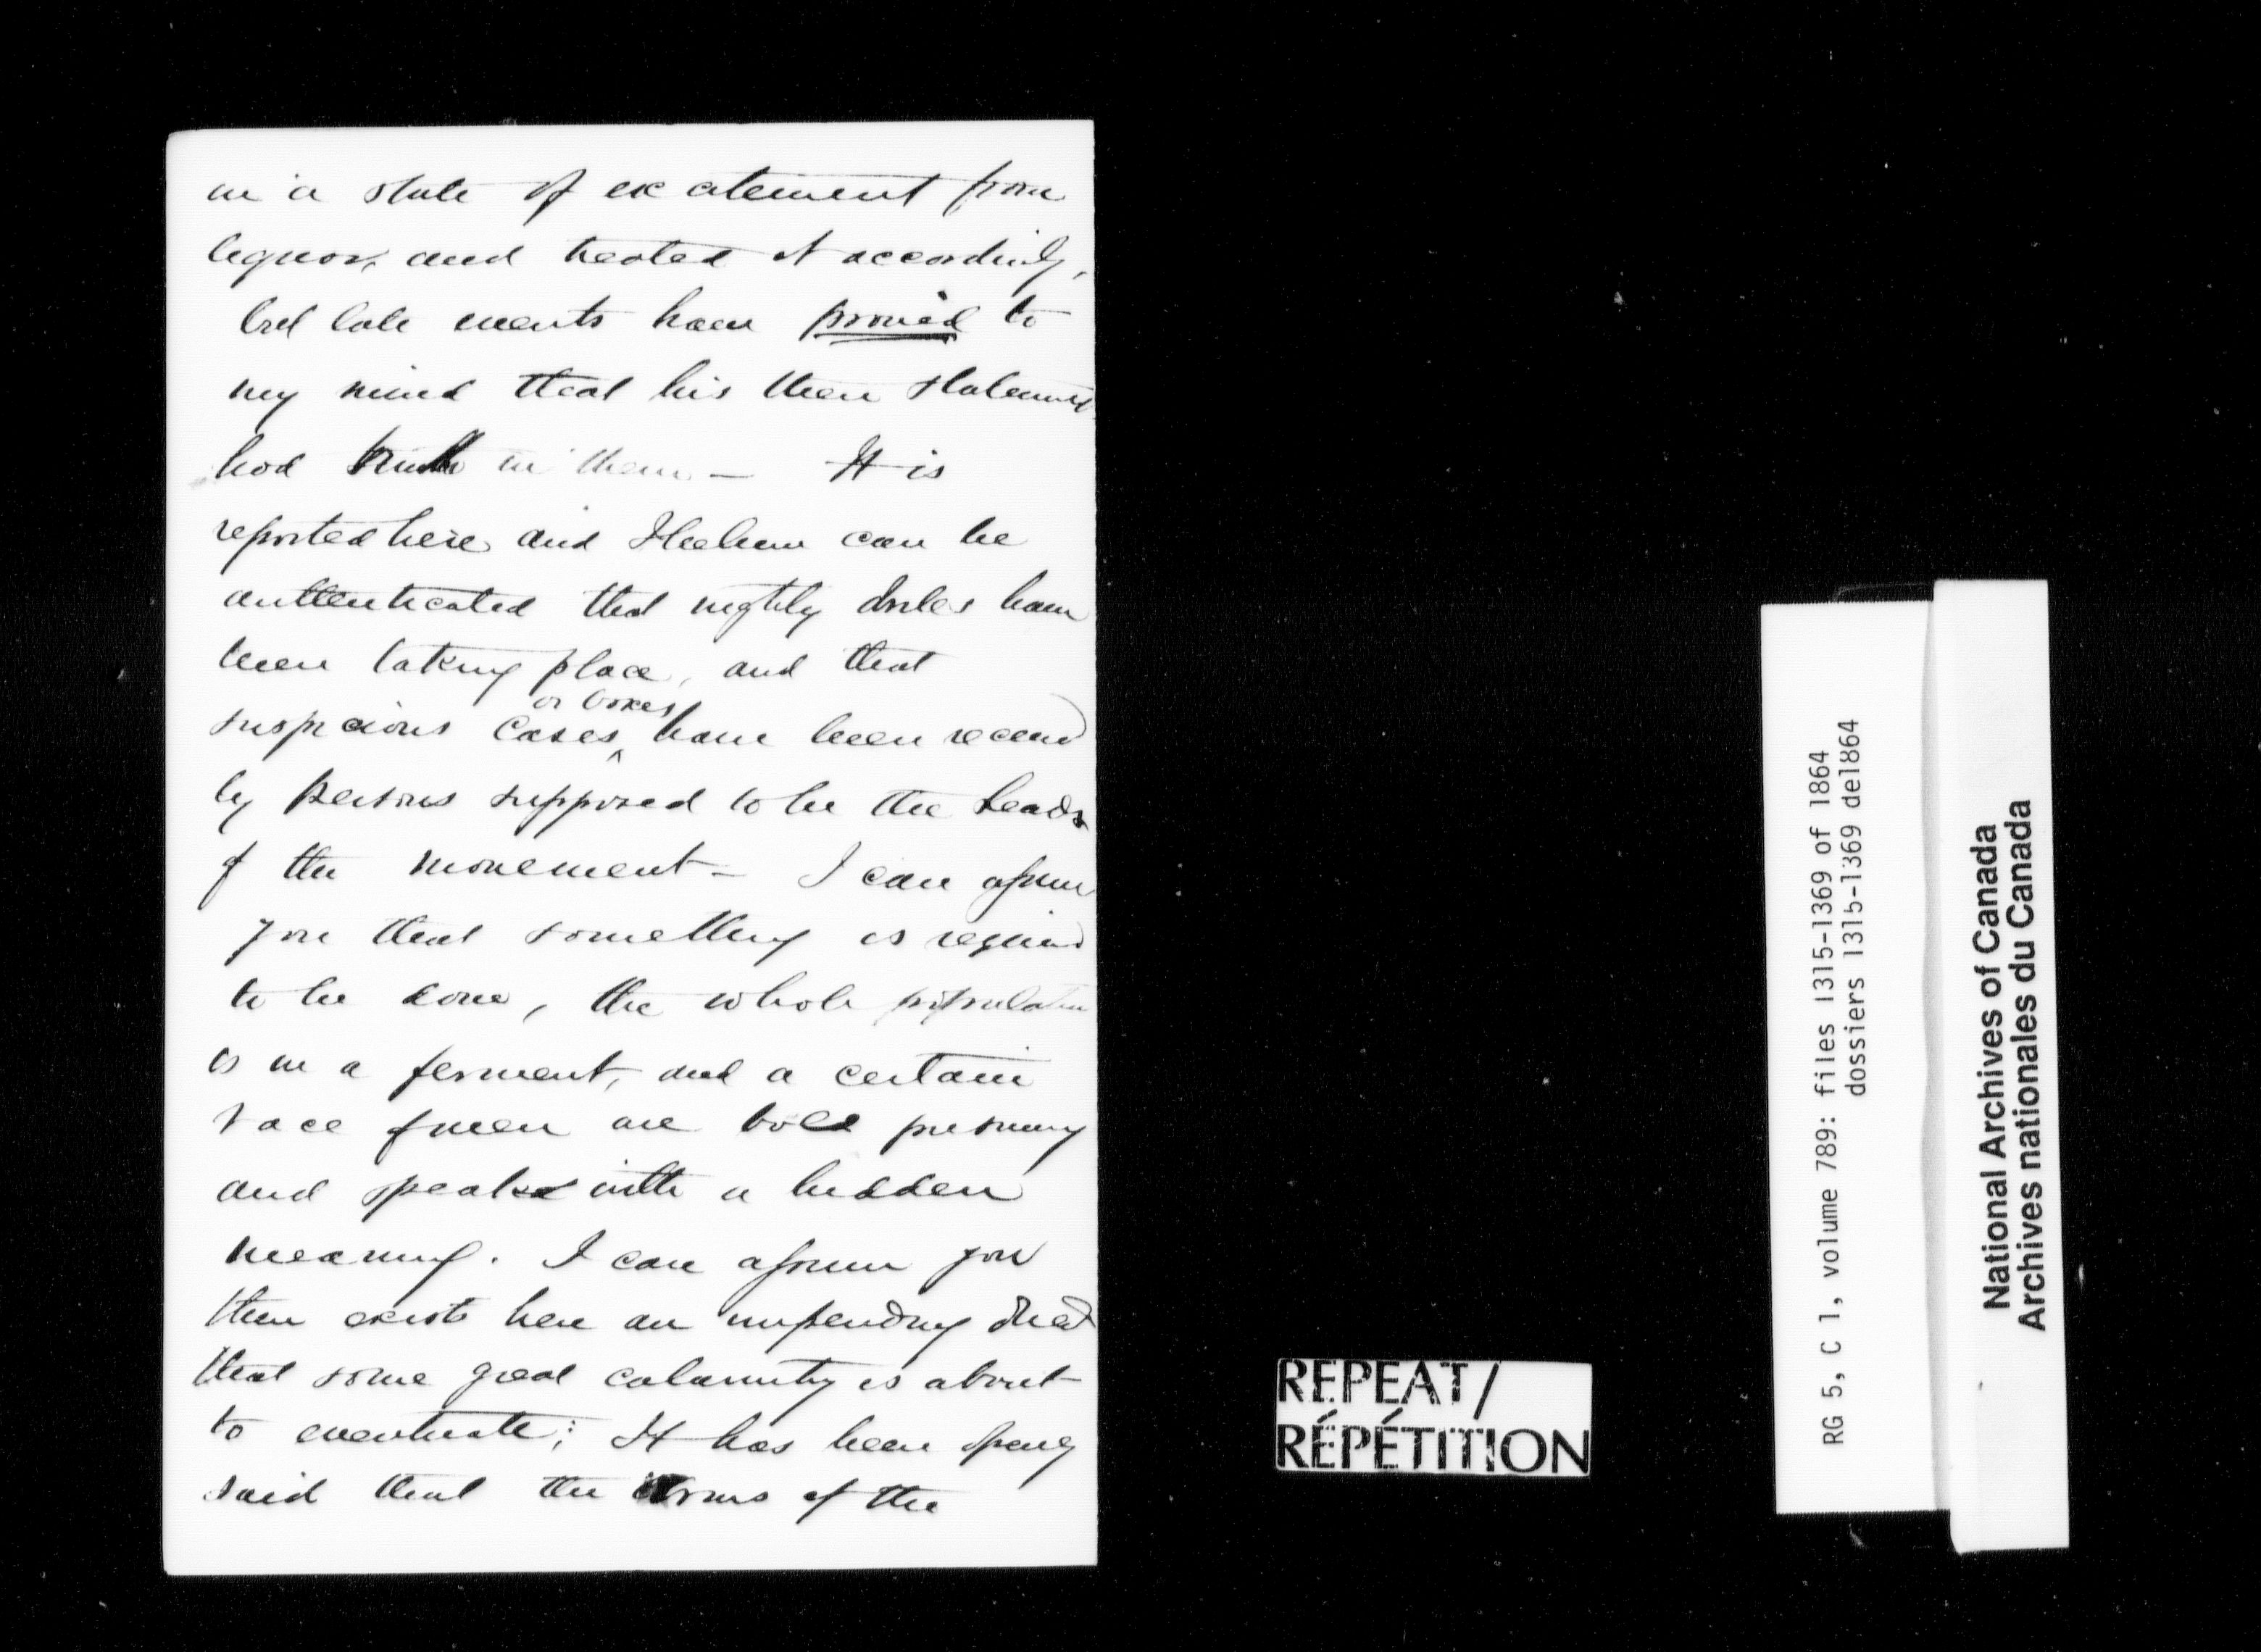 in a state of excitement from
liquor, and treated it accordingly,
but late events have proved to
my mind that his then statements
had truth in them — It is
reported here and I believe can be
authenticated that nightly drills have
been taking place, and that
suspicious cases or boxes have been received
by persons supposed to be the heads
of the movement — I can assure
you that something is required
to be done, the whole population
is in a ferment, and a certain
race of men are bold presuming
and speak with a hidden
meaning. I can assure you
there exists here an impending dread
that some great calamity is about
to eventuate; It has been openly
said that the arms of the
REPEAT/
RÉPÉTITION
RG 5, C 1, volume 789: files 1315-1369 of 1864
dossiers 1315-1369 de1864
National Archives of Canada
Archives nationales du Canada